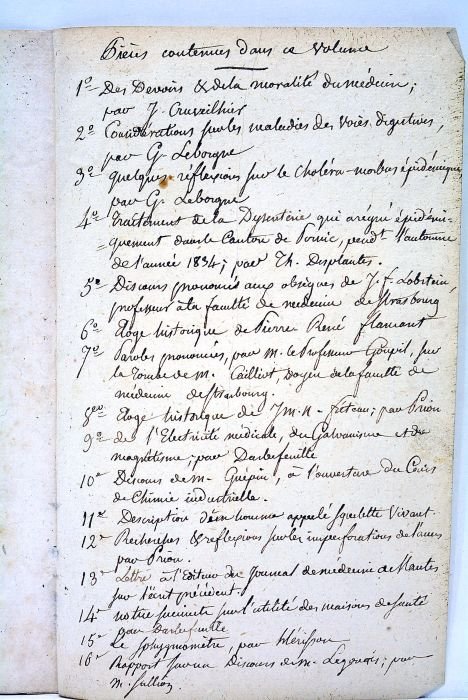 Pièces contenues dans ce Volume
1º Des Devoirs & de la moralité du médecin;
par J. Cruveilhier
2º Considérations sur les maladies des voies digestives,
par G. Leborgne
3º quelques réflexions sur le Choléra-morbus épidémique
par G. Leborgne
4º Traitement de la Dysenterie qui a régné épidémi-
-quement dans le Canton de Pornic, pendt l'automne
de l'année 1834; par Th. Desplantes.
5º Discours prononcés aux obsèques de J. f. Lobstein,
professeur à la faculté de médecine de Strasbourg
6º Eloge historique de Pierre René flamant
7º Paroles prononcées, par M. le Professeur Goupil, sur
la Tombe de M. Cailliot, Doyen de la faculté de
médecine de Strasbourg.
8º Eloge historique de J. M. N. ; par Priou
9º de l'Electricité médicale, du Galvanisme et du
magnétisme; par Darbefeuille
10º Discours de M. Guépin, à l'ouverture du Cours
de Chimie industrielle.
11º Description d'un homme appelé Squelette Vivant.
12º Recherches & réflexions sur les imperforations de l'anus
par Priou.
13º Lettre à l'Editeur du Journal de médecine de Nantes
sur l'écrit précédent
14º notice succincte sur l'utilité des maisons de santé
par Darbefeuille
15º Le Sphygmomètre, par Hérisson
16º Rapport sur un Discours de M. Legouais; par
M.